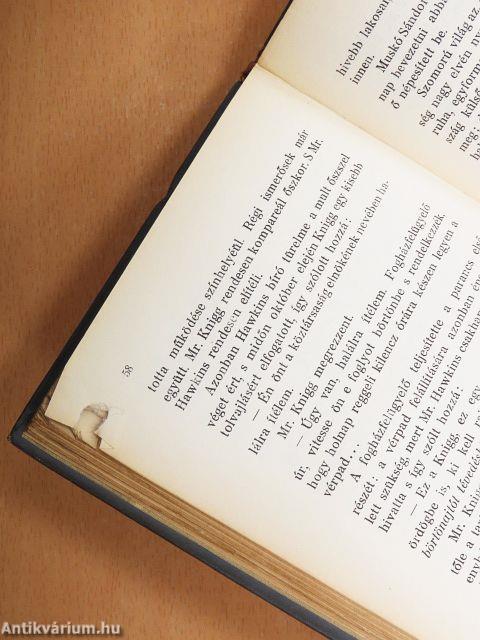 58
totta működése színhelyéül. Régi ismerősek már
együtt. Mr. Knigg rendesen kompareál őszkor. S Mr.
Hawkins rendesen elítéli.
Azonban Hawkins bíró türelme a mult őszszel
véget ért, s midőn október elején Knigg egy kisebb
tolvajlásért elfogatott, így szólott hozzá:
— Én önt a köztársaság elnökének nevében ha-
lálra ítélem.
Mr. Knigg megrezzent.
— Úgy van, halálra ítélem. Fogházfelügyelő
úr, vitesse ön e foglyot börtönbe s rendelkezzék
hogy holnap reggeli kilencz órára készen legyen a
vérpad...
A fogházfelügyelő teljesítette a parancs első
részét: a vérpad felállítására azonban
lett szükség, mert Mr. Hawkins csakhamar
hivatta s így szólt hozzá:
— Ez a Knigg, ez egy
ördögbe is, ki kell
börtönajtót tévedésből
Mr. Knigg
tőle a
enyh
hivebb lakosai
innen.
Muskó Sándor
nap bevezetni abba
ő népesített be.
Szomorú világ az
ség nagy elvén
ruha, egyform
szág külső
meg:
Antikvárium.hu